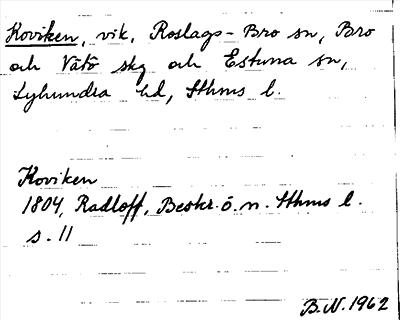 Koviken, vik, Roslags-Bro sn, Bro
och Vätö skg och Estuna sn,
Lyhundra hd, Sthms l.
Koviken
1804, Radloff, Beskr. ö. n. Sthms l.
s. 11
B.N. 1962